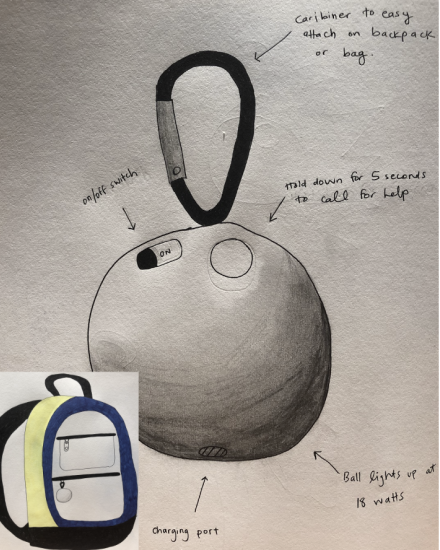 Caribiner to easy
attach on backpack
or bag.
on/off switch
Hold down for 5 seconds
to call for help
ON
Ball lights up at
18 watts
Charging port